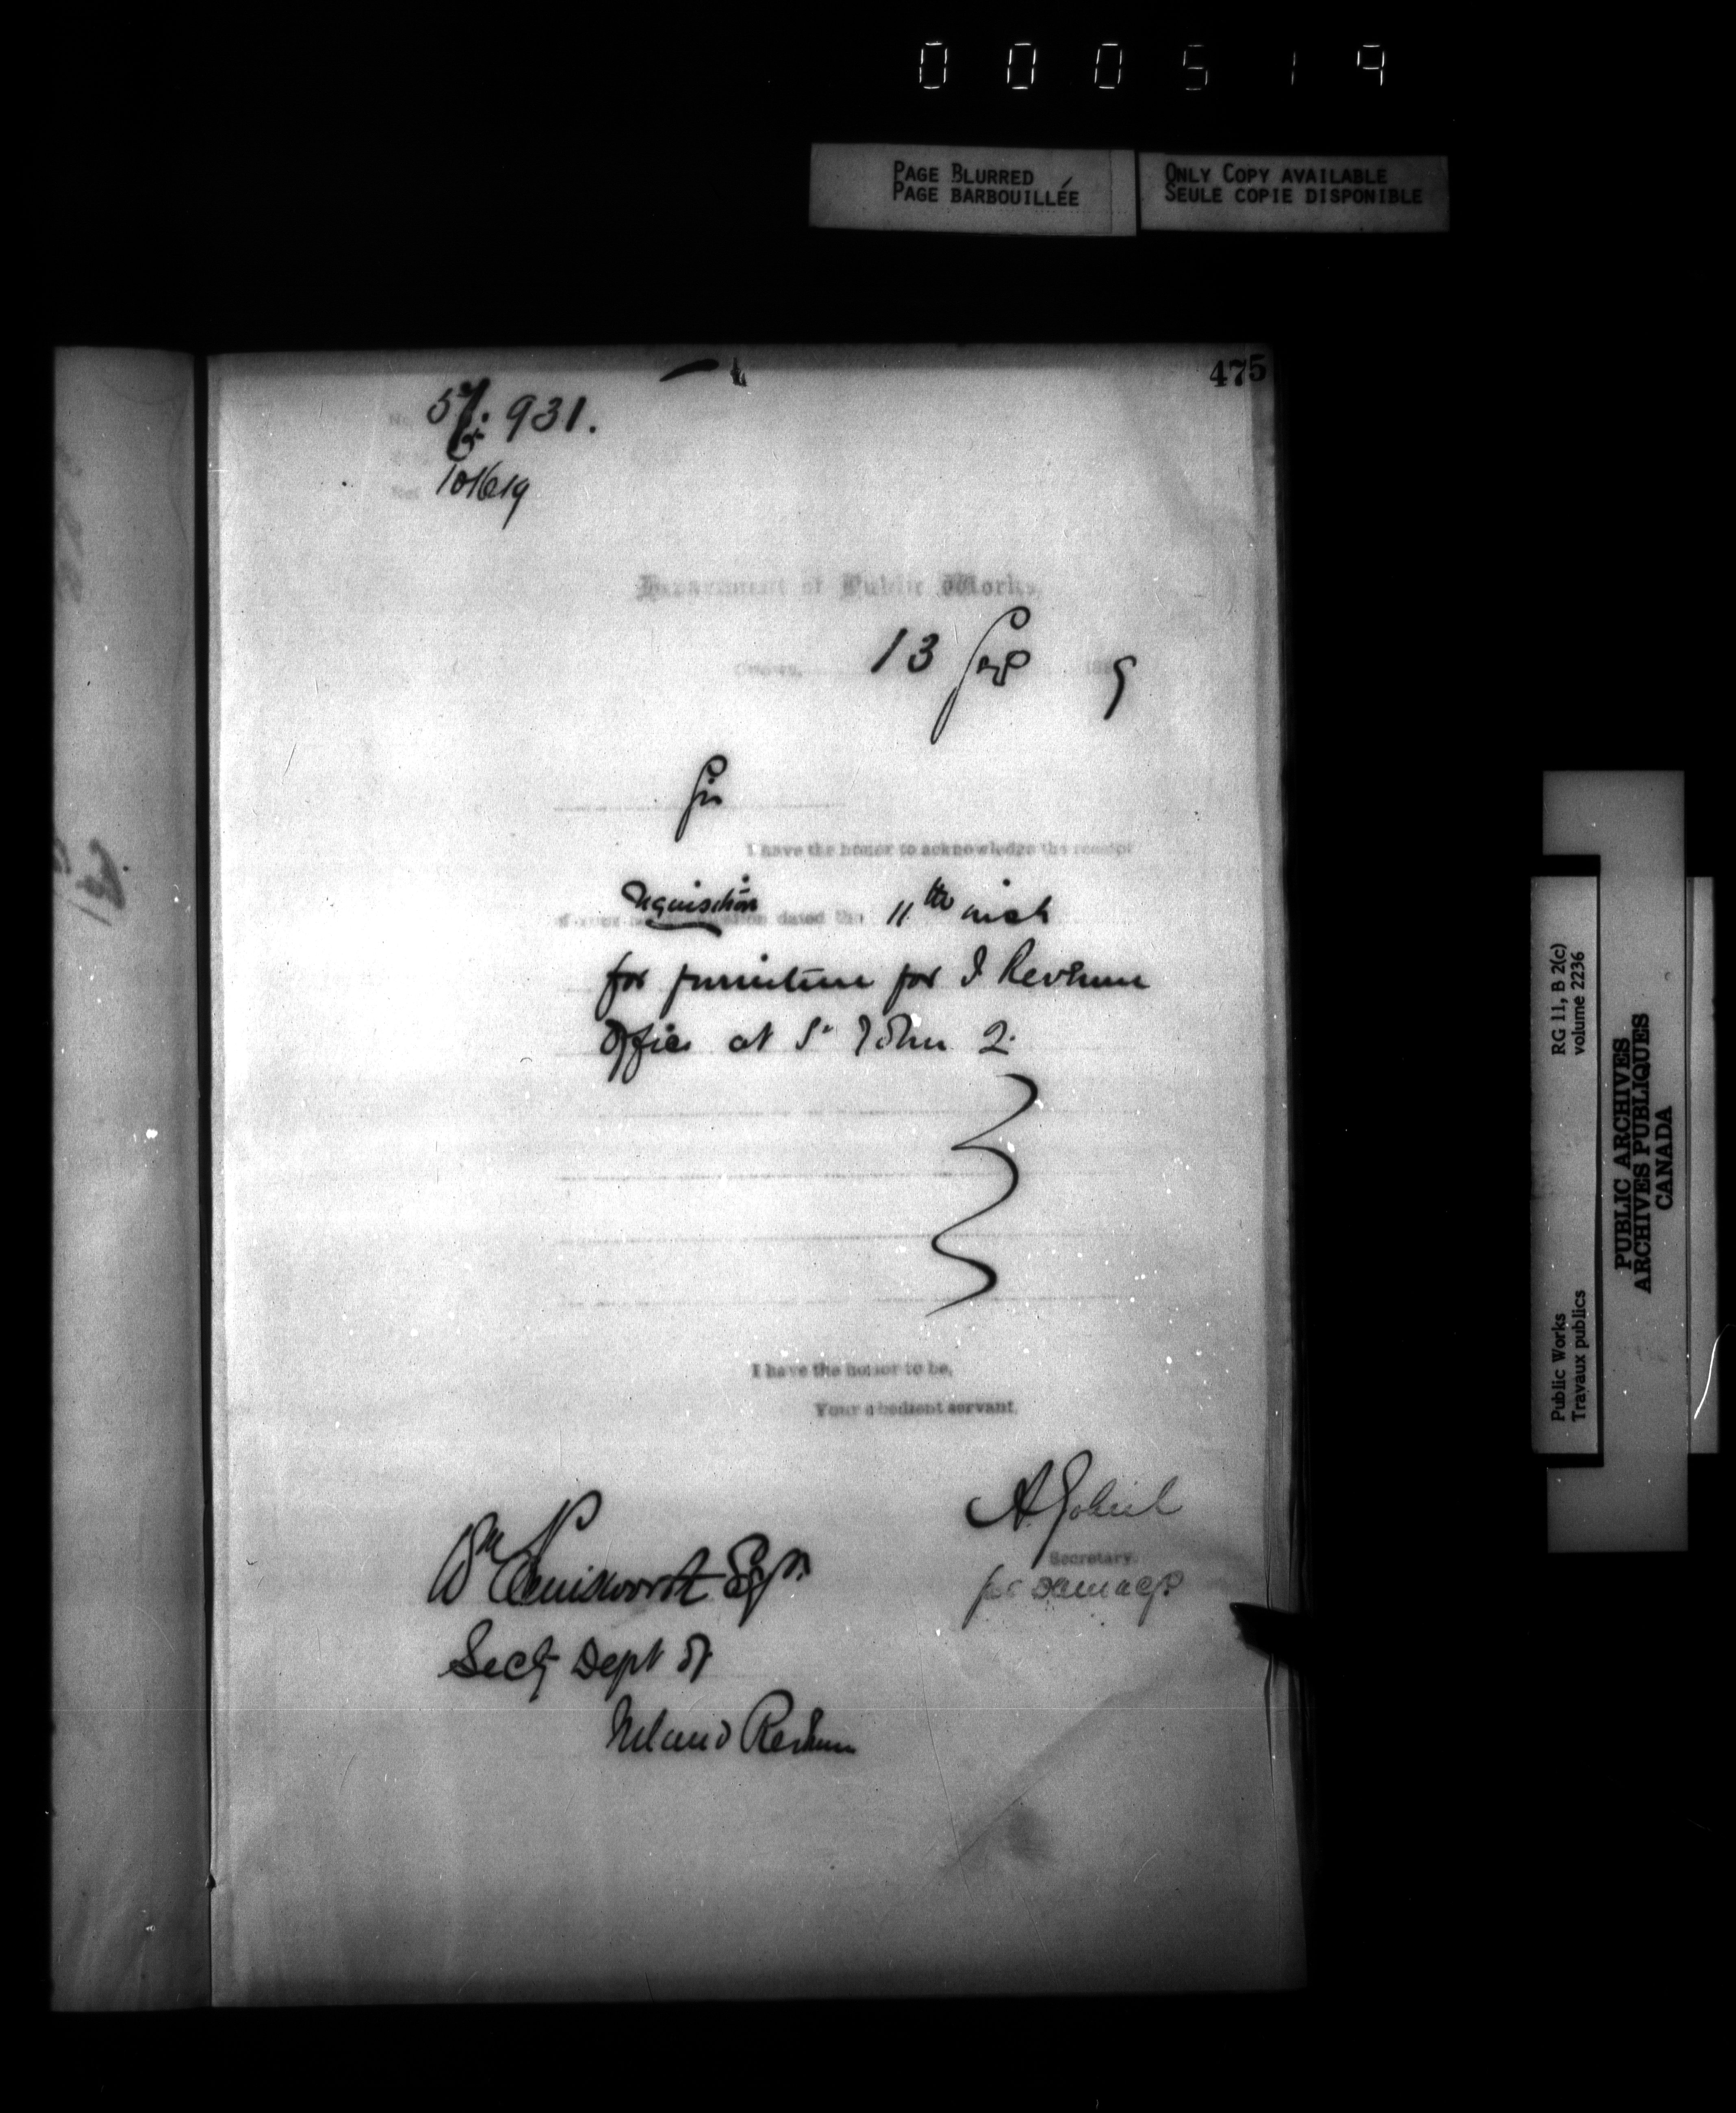 000519
PAGE BLURRED
PAGE BARBOUILLÉE
ONLY COPY AVAILABLE
SEULE COPIE DISPONIBLE
475
No. 931.
Ref. 101619
Department of Public Works,
Ottawa, 13 Sep 188 9
Sir
I have the honor to acknowledge the receipt
of your requisition dated the 11th inst
for furniture for I Revenue
Office at St John Q.
I have the honor to be,
Your obedient servant,
A. Gobeil
Secretary.
Wm Esqr.
Secy Dept of
Inland Revenue
Public Works
Travaux publics
RG 11, B 2(c)
volume 2236
PUBLIC ARCHIVES
ARCHIVES PUBLIQUES
CANADA